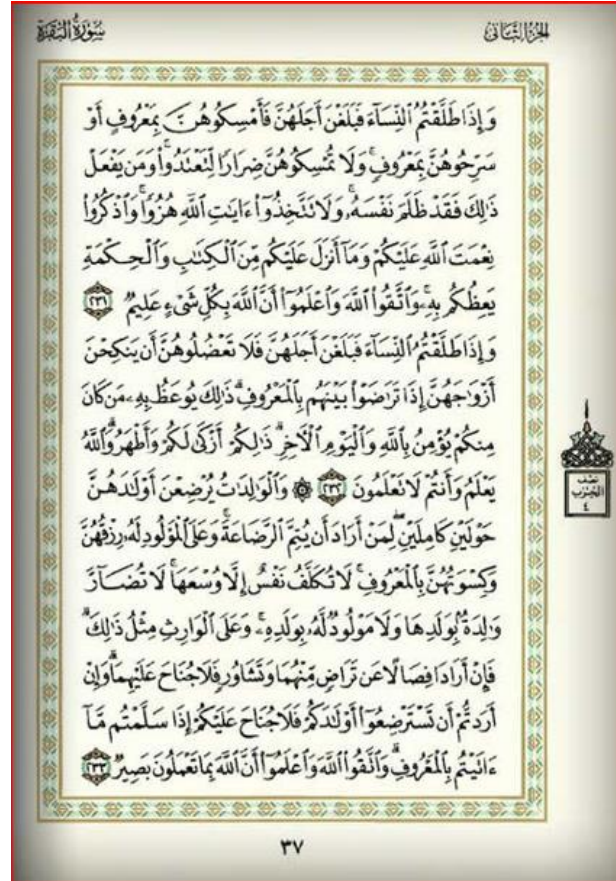 الجزء الثاني
سورة البقرة
وَإِذَا طَلَّقْتُمُ ٱلنِّسَآءَ فَبَلَغْنَ أَجَلَهُنَّ فَأَمْسِكُوهُنَّ بِمَعْرُوفٍ أَوْ
سَرِّحُوهُنَّ بِمَعْرُوفٍۚ وَلَا تُمْسِكُوهُنَّ ضِرَارًا لِّتَعْتَدُوا۟ۚ وَمَن يَفْعَلْ
ذَٰلِكَ فَقَدْ ظَلَمَ نَفْسَهُۥۚ وَلَا تَتَّخِذُوٓا۟ ءَايَٰتِ ٱللَّهِ هُزُوًاۚ وَٱذْكُرُوا۟
نِعْمَتَ ٱللَّهِ عَلَيْكُمْ وَمَآ أَنزَلَ عَلَيْكُم مِّنَ ٱلْكِتَٰبِ وَٱلْحِكْمَةِ
يَعِظُكُم بِهِۦۚ وَٱتَّقُوا۟ ٱللَّهَ وَٱعْلَمُوٓا۟ أَنَّ ٱللَّهَ بِكُلِّ شَىْءٍ عَلِيمٌ ٢٣١
وَإِذَا طَلَّقْتُمُ ٱلنِّسَآءَ فَبَلَغْنَ أَجَلَهُنَّ فَلَا تَعْضُلُوهُنَّ أَن يَنكِحْنَ
أَزْوَٰجَهُنَّ إِذَا تَرَٰضَوْا۟ بَيْنَهُم بِٱلْمَعْرُوفِۗ ذَٰلِكَ يُوعَظُ بِهِۦ مَن كَانَ
مِنكُمْ يُؤْمِنُ بِٱللَّهِ وَٱلْيَوْمِ ٱلْءَاخِرِۗ ذَٰلِكُمْ أَزْكَىٰ لَكُمْ وَأَطْهَرُۗ وَٱللَّهُ
يَعْلَمُ وَأَنتُمْ لَا تَعْلَمُونَ ٢٣٢ ۞ وَٱلْوَٰلِدَٰتُ يُرْضِعْنَ أَوْلَٰدَهُنَّ
حَوْلَيْنِ كَامِلَيْنِۖ لِمَنْ أَرَادَ أَن يُتِمَّ ٱلرَّضَاعَةَۚ وَعَلَى ٱلْمَوْلُودِ لَهُۥ رِزْقُهُنَّ
وَكِسْوَتُهُنَّ بِٱلْمَعْرُوفِۚ لَا تُكَلَّفُ نَفْسٌ إِلَّا وُسْعَهَاۚ لَا تُضَآرَّ
وَٰلِدَةٌۢ بِوَلَدِهَا وَلَا مَوْلُودٌ لَّهُۥ بِوَلَدِهِۦۚ وَعَلَى ٱلْوَارِثِ مِثْلُ ذَٰلِكَۗ
فَإِنْ أَرَادَا فِصَالًا عَن تَرَاضٍ مِّنْهُمَا وَتَشَاوُرٍ فَلَا جُنَاحَ عَلَيْهِمَاۗ وَإِنْ
أَرَدتُّمْ أَن تَسْتَرْضِعُوٓا۟ أَوْلَٰدَكُمْ فَلَا جُنَاحَ عَلَيْكُمْ إِذَا سَلَّمْتُم مَّآ
ءَاتَيْتُم بِٱلْمَعْرُوفِۗ وَٱتَّقُوا۟ ٱللَّهَ وَٱعْلَمُوٓا۟ أَنَّ ٱللَّهَ بِمَا تَعْمَلُونَ بَصِيرٌ ٢٣٣
نصف
الحزب
٤
٣٧